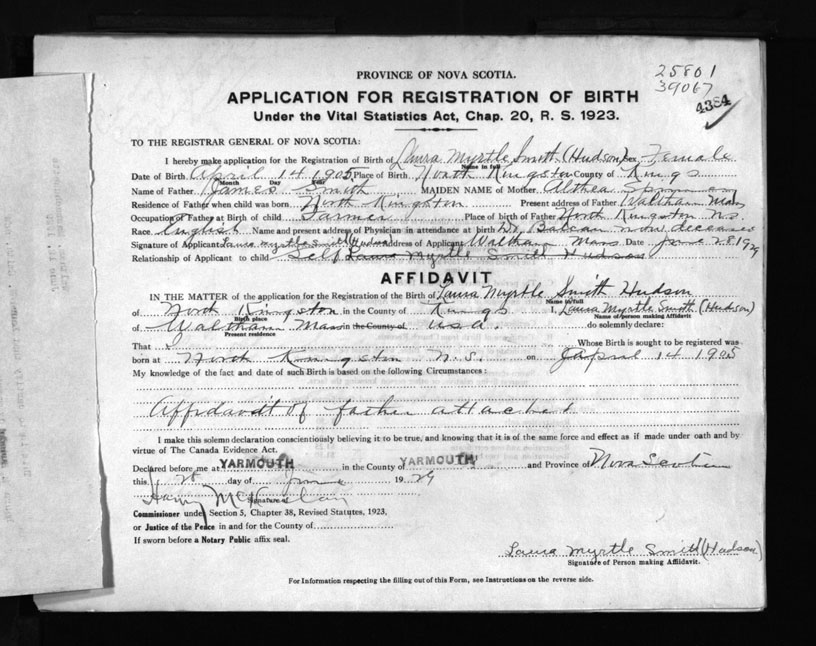 25801
39067
4384
PROVINCE OF NOVA SCOTIA.
APPLICATION FOR REGISTRATION OF BIRTH
Under the Vital Statistics Act, Chap. 20, R. S. 1923.
TO THE REGISTRAR GENERAL OF NOVA SCOTIA:
I hereby make application for the Registration of Birth of Laura Myrtle Smith (Hudson) Female
Name in full
Date of Birth April 14 1905 Place of Birth North Kingston County of Kings
Month Day
Name of Father James Smith MAIDEN NAME of Mother Althea
Residence of Father when child was born North Kingston Present address of Father Waltham Mass
Occupation of Father at Birth of child Farmer Place of birth of Father North Kingston N.S.
Race English Name and present address of Physician in attendance at birth Dr. now deceased
Signature of Applicant Laura Myrtle Smith Hudson address of Applicant Waltham Mass Date June 28 1929
Relationship of Applicant to child Self Laura Myrtle Smith Hudson
AFFIDAVIT
IN THE MATTER of the application for the Registration of the Birth of Laura Myrtle Smith Hudson
Name in full
of North Kingston in the County of Kings I, Laura Myrtle Smith (Hudson)
Birth place Name of person making Affidavit
of Waltham Mass in the County of U.S.A. do solemnly declare:
Present residence
That I Whose Birth is sought to be registered was
born at North Kingston N.S. on April 14 1905
My knowledge of the fact and date of such Birth is based on the following Circumstances:
Affidavdt of father attached
I make this solemn declaration conscientiously believing it to be true, and knowing that it is of the same force and effect as if made under oath and by
virtue of The Canada Evidence Act.
Declared before me at YARMOUTH in the County of YARMOUTH and Province of Nova Scotia
this 28 day of June 1929
Harry
Signature of
Commissioner under Section 5, Chapter 38, Revised Statutes, 1923,
or Justice of the Peace in and for the County of
If sworn before a Notary Public affix seal.
Laura Myrtle Smith (Hudson)
Signature of Person making Affidavit.
For Information respecting the filling out of this Form, see Instructions on the reverse side.